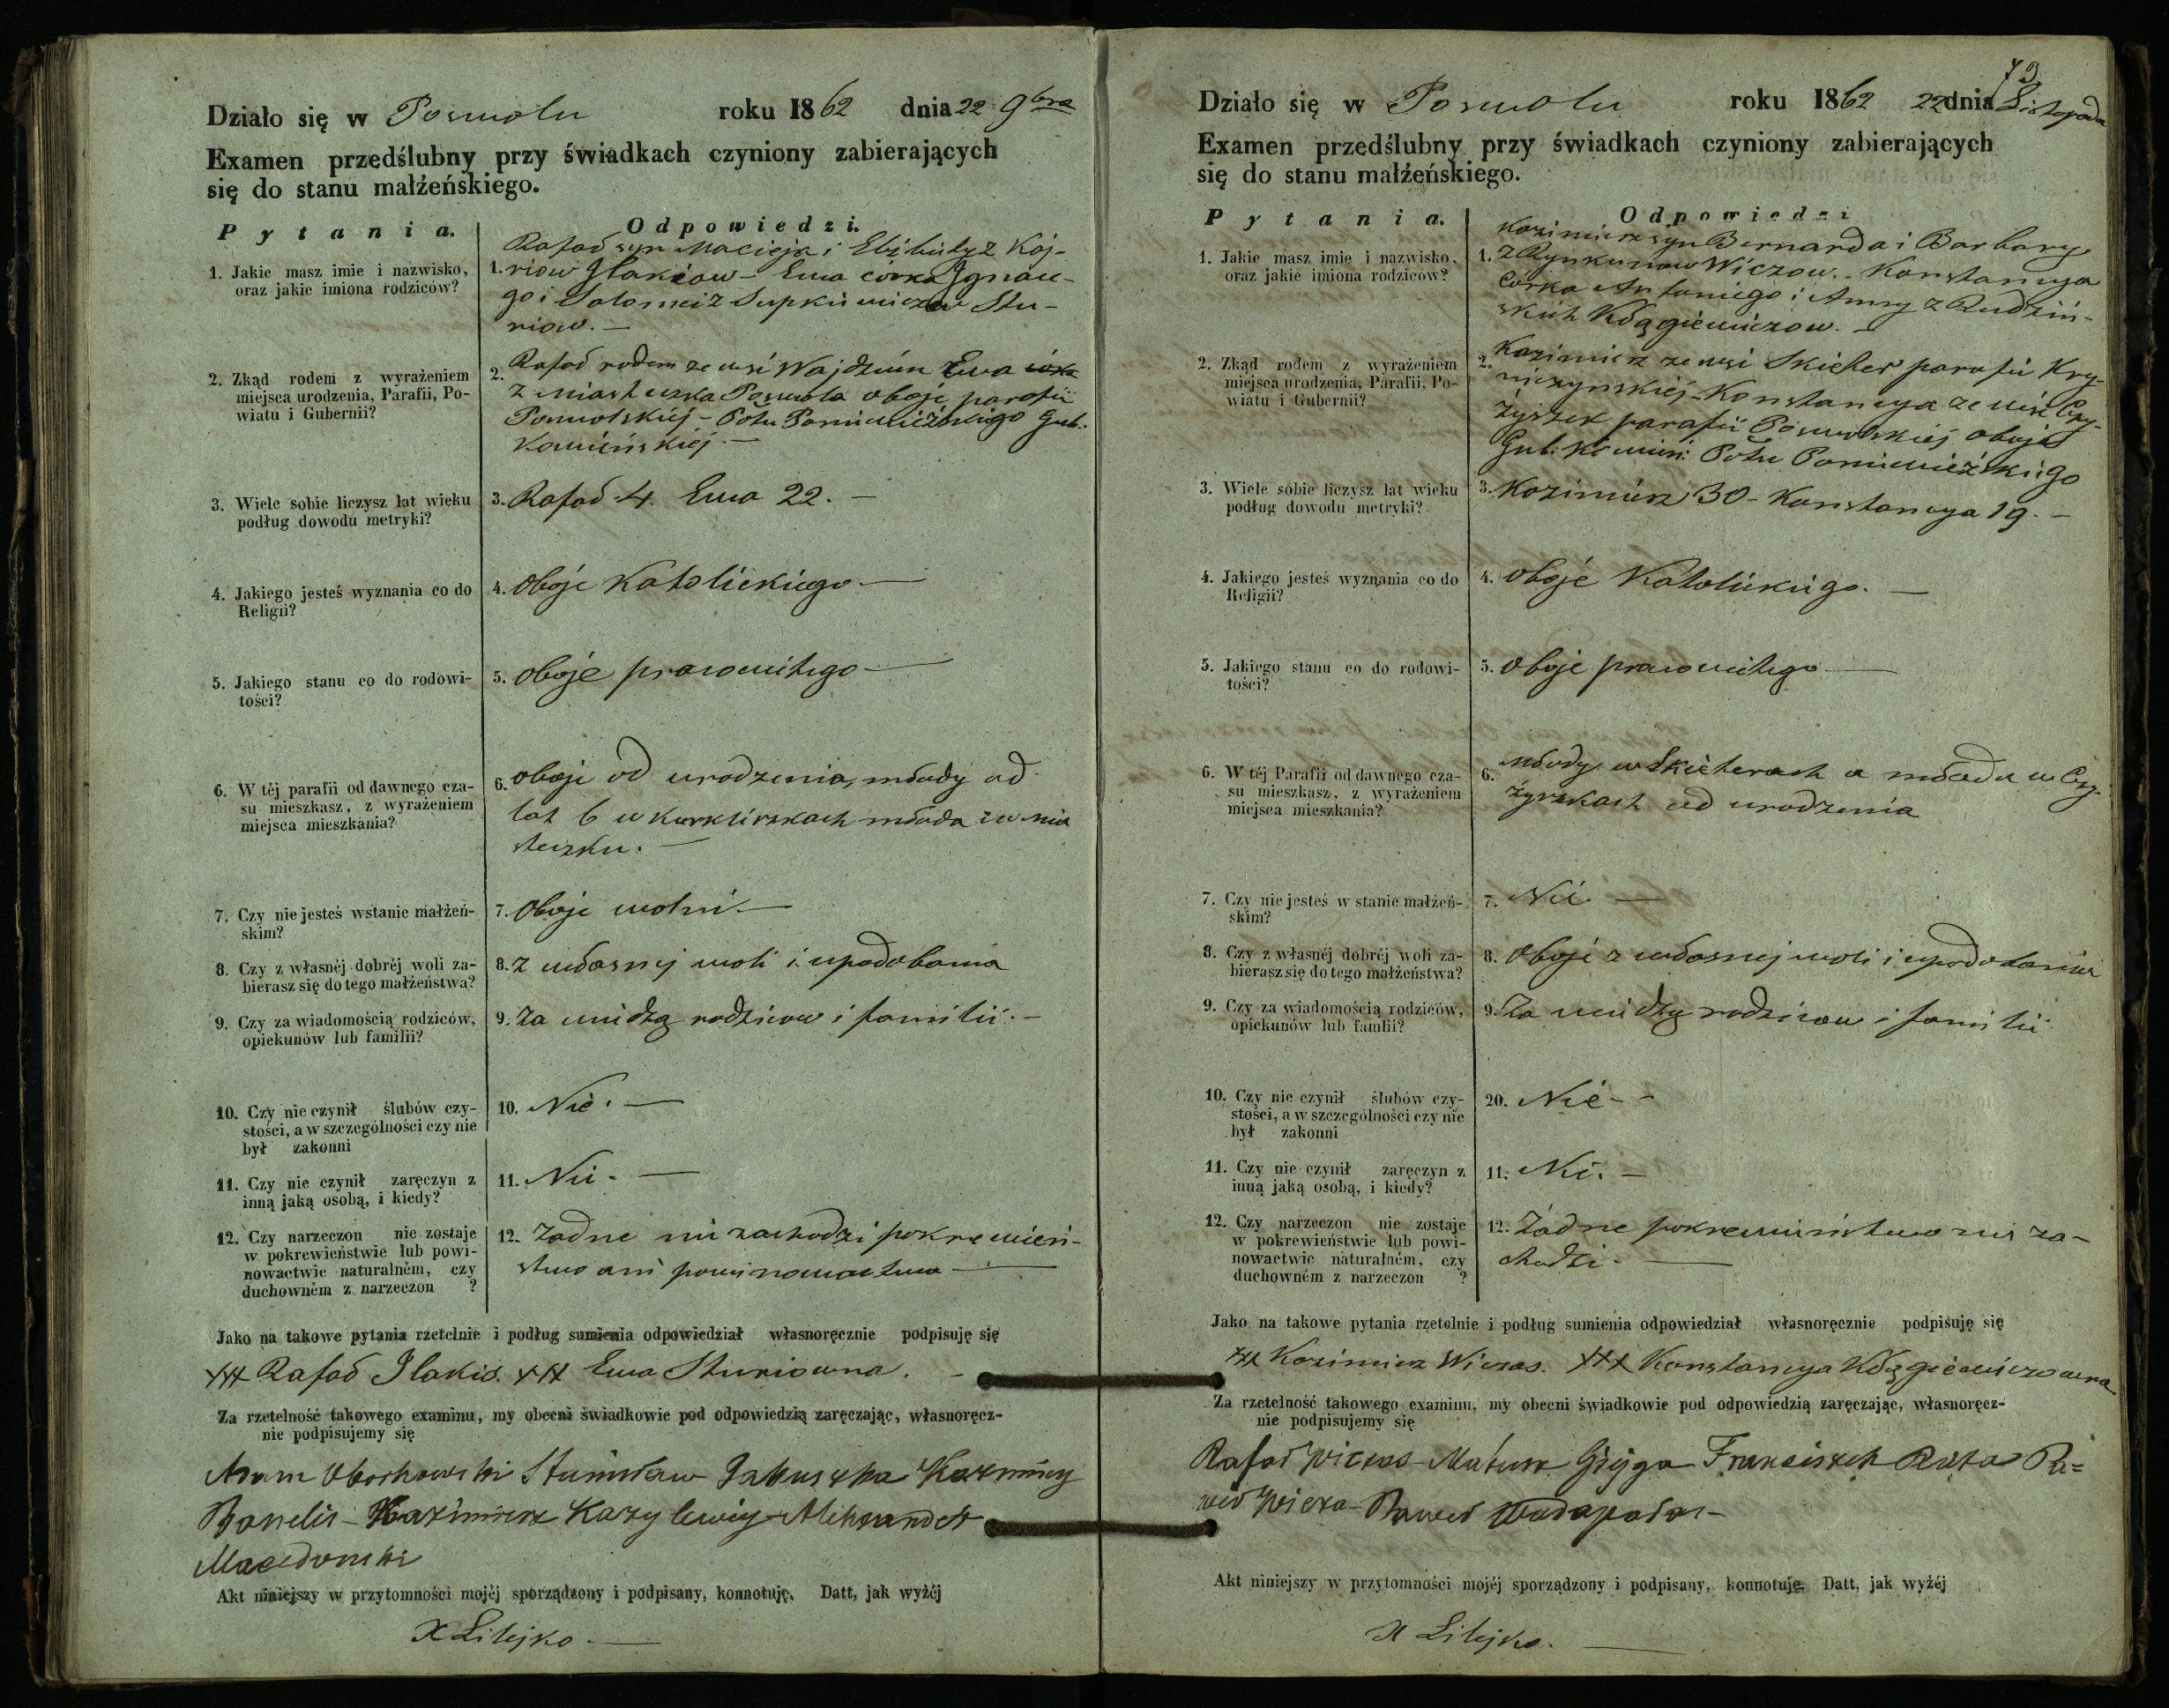 Działo się w Poswolu roku 1862 dnia 22 9bra
Examen przedślubny przy świadkach czyniony zabierających
się do stanu małżeńskiego.
Pytania. Odpowiedzi.
1. Jakie masz imie i nazwisko,
oraz jakie imiona rodziców?
Rafał syn Macieja i Elżbiety z
1. Ilakiow – Ewa córka Ignace-
go i Salomei z Stu-
niow. –
2. Zkąd rodem z wyrażeniem
miejsca urodzenia, Parafii, Po-
wiatu i Gubernii?
2. Rafał rodem ze wsi Wajdziun Ewa
z miasteczka Poswola oboje parafii
Poswolskiej – Pottu Poniewieżskiego Gub.
Kowieńskiej. –
3. Wiele sobie liczysz lat wieku
podług dowodu metryki?
3. Rafał 4. Ewa 22. –
4. Jakiego jesteś wyznania co do
Religii?
4. Oboje Katolickiego –
5. Jakiego stanu co do rodowi-
tości?
5. oboje prawowitego –
6. W téj parafii od dawnego cza-
su mieszkasz, z wyrażeniem
miejsca mieszkania?
6. oboje od urodzenia, młody od
lat 6 w młoda w mia
steczku. –
7. Czy nie jesteś wstanie małżeń-
skim?
7. Oboje wolni. –
8. Czy z własnéj dobréj woli za-
bierasz się do tego małżeństwa?
8. z własnej woli i upodobania
9. Czy za wiadomością rodziców,
opiekunów lub familii?
9. Za wiedzą rodzicow i familii. –
10. Czy nie czynił ślubów czy-
stości, a w szczególności czy nie
był zakonni
10. Nie. –
11. Czy nie czynił zaręczyn z
inną jaką osobą, i kiedy?
11. Nie. –
12. Czy narzeczon nie zostaje
w pokrewieństwie lub powi-
nowactwie naturalném, czy
duchowném z narzeczon ?
12. Żadne nie zachodzi pokrewień-
stwo ani powinowactwo –
Jako na takowe pytania rzetelnie i podług sumienia odpowiedział własnoręcznie podpisuję się
XXX Rafał Ilakis. XXX Ewa Stuniowna. –
Za rzetelność takowego examinu, my obecni świadkowie pod odpowiedzią zaręczając, własnoręcz-
nie podpisujemy się
Stanisław Jakuszka Kazimierz
Kazimierz Alexander
Macedonski
Akt niniejszy w przytomności mojéj sporządzony i podpisany, konnotuję. Datt, jak wyżéj
X Litejko. –
79
Działo się w Poswolu roku 1862 22 dnia Listopada
Examen przedślubny przy świadkach czyniony zabierających
się do stanu małżeńskiego.
Pytania. Odpowiedzi
1. Jakie masz imie i nazwisko,
oraz jakie imiona rodziców?
Kazimierz syn Bernarda i Barbary
1. z Rynkunow Wiczow. – Konstancya
Córka Antoniego i Anny z Rudziń-
skich Kłągiewiczow. –
2. Zkąd rodem z wyrażeniem
miejsca urodzenia, Parafii, Po-
wiatu i Gubernii?
2. Kazimierz ze wsi parafii Kry-
niczynskiej – Konstancya ze wsi Czy-
żyszek parafii Poswolskiej oboje
Gub: Kowien: Pottu Poniewieżskiego
3. Wiele sobie liczysz lat wieku
podług dowodu metryki?
3. Kazimierz 30 – Konstancya 19. –
4. Jakiego jesteś wyznania co do
Religii?
4. oboje Katolickiego. –
5. Jakiego stanu co do rodowi-
tości?
5. Oboje prawowitego –
6. W téj Parafii od dawnego cza-
su mieszkasz, z wyrażeniem
miejsca mieszkania?
6. młody w a młoda w Czy-
żyszkach od urodzenia
7. Czy nie jesteś w stanie małżeń-
skim?
7. Nie. –
8. Czy z własnéj dobréj woli za-
bierasz się do tego małżeństwa?
8. Oboje z własnej woli i upodobania
9. Czy za wiadomością rodziców,
opiekunów lub famlii?
9. Za wiedzą rodzicow i familii
10. Czy nie czynił ślubów czy-
stości, a w szczególności czy nie
był zakonni
20. Nie - -
11. Czy nie czynił zaręczyn z
inną jaką osobą, i kiedy?
11. Nie. –
12. Czy narzeczon nie zostaje
w pokrewieństwie lub powi-
nowactwie naturalném, czy
duchowném z narzeczon ?
12. Żadne pokrewieństwo nie za-
chodzi. –
Jako na takowe pytania rzetelnie i podług sumienia odpowiedział własnoręcznie podpisuję się
XXX Kazimierz Wiczas. XXX Konstancya Kłągiewiczowna
Za rzetelność takowego examinu, my obecni świadkowie pod odpowiedzią zaręczając, własnoręcz-
nie podpisujemy się
Rafał Wiczas – Franciszek Pa=
weł Wicza – Paweł
Akt niniejszy w przytomności mojéj sporządzony i podpisany, konnotuję. Datt, jak wyżéj
X Litejko. –